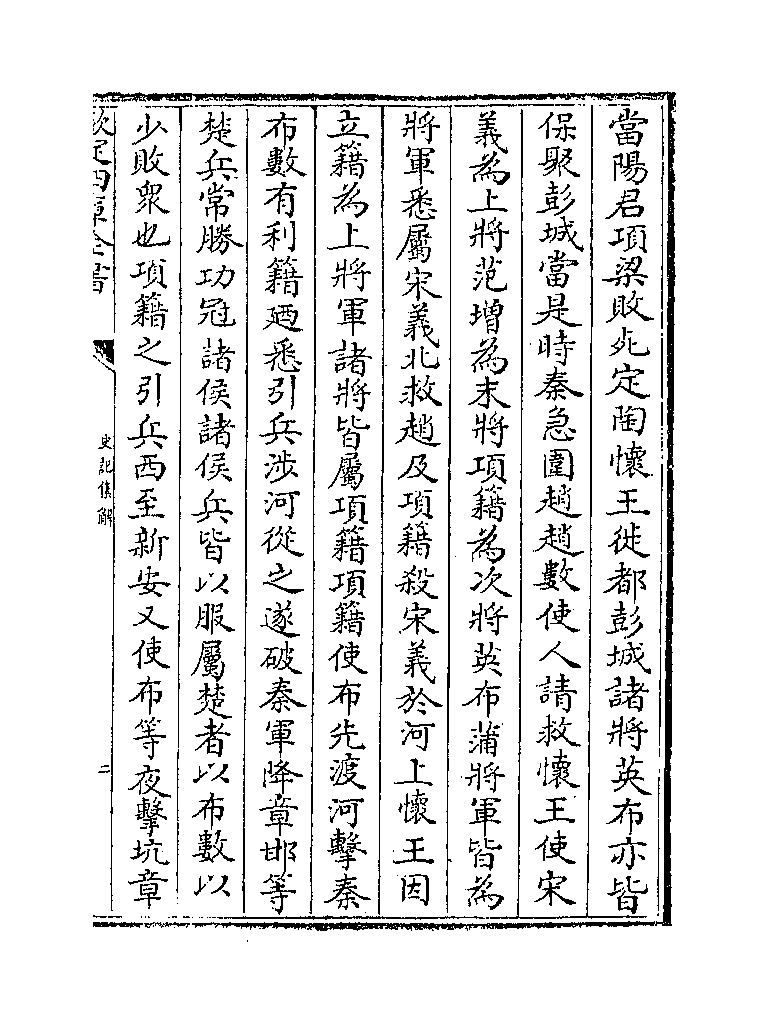 當陽君項梁敗死定陶懷王徙都彭城諸將英布亦皆
保聚彭城當是時秦急圍趙趙數使人請救懷王使宋
義為上將范增為末將項籍為次將英布蒲將軍皆為
將軍悉屬宋義北救趙及項籍殺宋義於河上懷王因
立籍為上將軍諸將皆屬項籍項籍使布先渡河擊秦
布數有利籍廼悉引兵涉河從之遂破秦軍降章邯等
楚兵常勝功冠諸侯諸侯兵皆以服屬楚者以布數以
少敗衆也項籍之引兵西至新安又使布等夜擊坑章
欽定四庫全書
史記集解
二